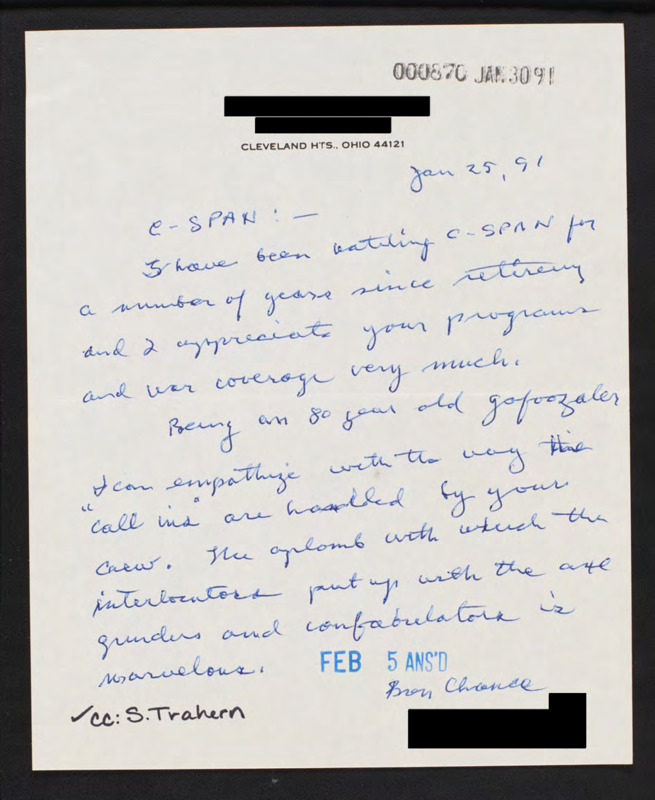 000870 JAN 30 91
CLEVELAND HTS., OHIO 44121
Jan 25, 91
C-SPAN: —
I have been watching C-SPAN for
a number of years since retiring
and I appreciate your programs
and war coverage very much.
Being an 80 year old gofoozaler
I can empathize with the way the
"call ins" are handled by your
crew. The aplomb with which the
interlocutors put up with the axe
grinders and confabulators is
marvelous.
FEB 5 ANS'D
Chance
✓cc: S. Trahern